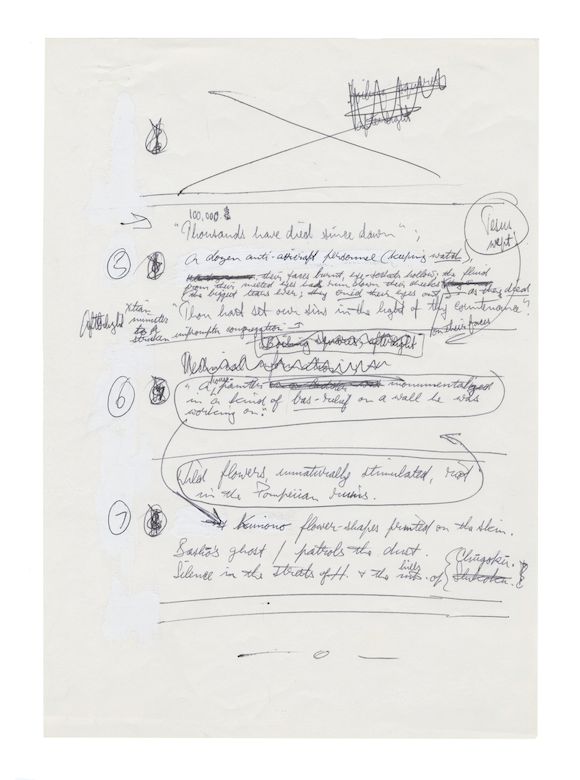 100,000
"Thousands have died since dawn";
Jesus
wept
5
A dozen anti-aircraft personnel (keeping watch),
their faces burnt, eye-sockets hollow, the fluid
from their melted eyes had run down their cheeks
the biggest tears ever; they cried their eyes out as they died
on their faces
"Thou hast set our sins in the light of thy countenance".
Afterlight
Xtian
minister
to a
stricken impromptu congregation
6
"A painter monumentalized
in a kind of bas-relief on a wall he was
working on."
Wild flowers, unnaturally stimulated, riot
in the Pompeiian ruins.
7
Kimono flower-shapes printed on the skin.
Basho's ghost / patrols the dust.
Silence in the streets of H. & the inns of
Chugoku.
Shikoku.